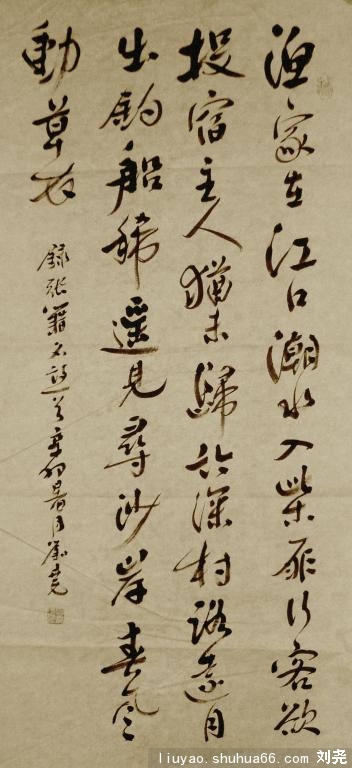 漁家在江口潮水入柴扉行客欲
投宿主人猶未歸竹深村路遠月
出釣船稀遙見尋沙岸春風
動草衣
錄張籍名詩辛卯暑月劉堯
liuyao.shuhua66.com 刘尧